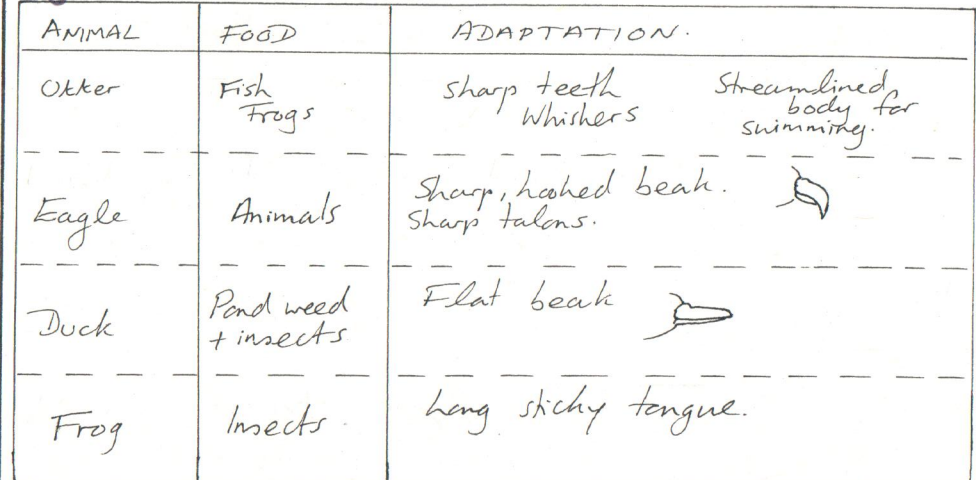 ANIMAL FOOD ADAPTATION.
Otter
Fish
Frogs
sharp teeth
Whiskers
Streamlined
body for
swimming.
Eagle
Animals
Sharp, hooked beak.
Sharp talons.
Duck
Pond weed
+ insects
Flat beak
Frog
Insects.
Long sticky tongue.